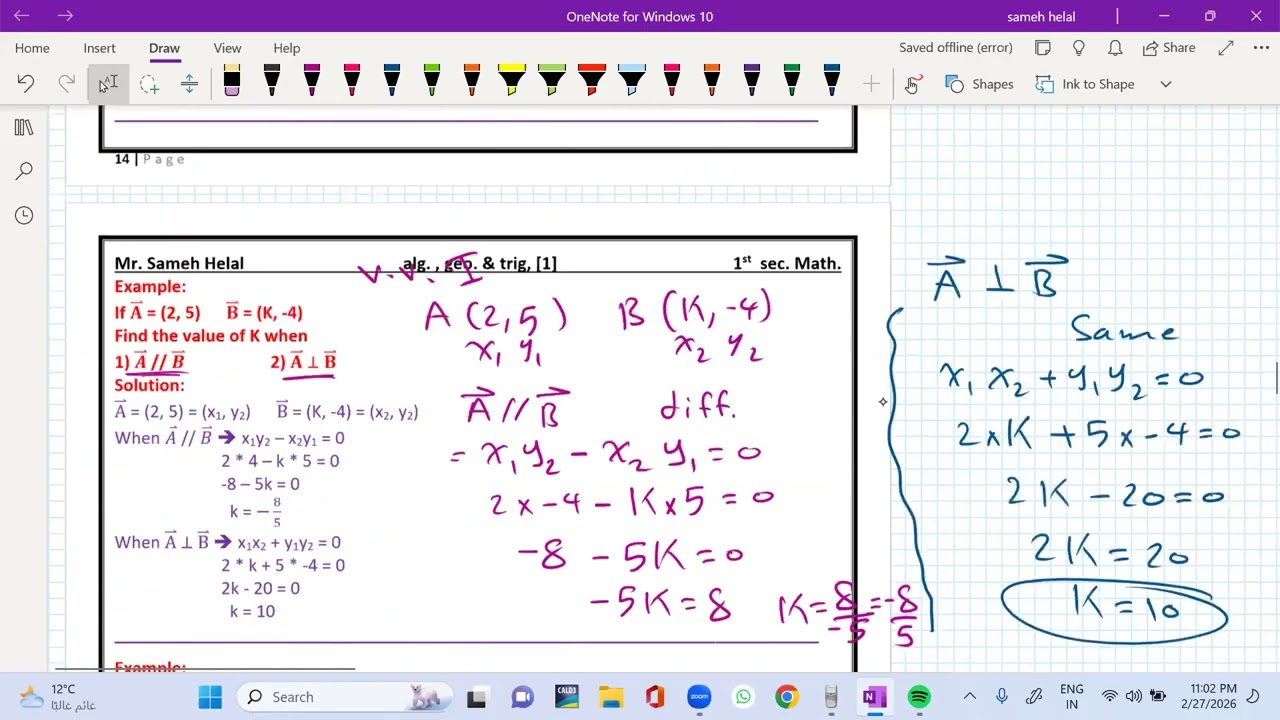 OneNote for Windows 10
sameh helal
Home Insert Draw View Help
Saved offline (error)
Share
Shapes
Ink to Shape
14 | Page
Mr. Sameh Helal alg. , geo. & trig, [1] 1st sec. Math.
v.v. I
Example:
If A⃗ = (2, 5) B⃗ = (K, -4)
Find the value of K when
1) A⃗ // B⃗ 2) A⃗ ⊥ B⃗
Solution:
A⃗ = (2, 5) = (x₁, y₂) B⃗ = (K, -4) = (x₂, y₂)
When A⃗ // B⃗ ➔ x₁y₂ – x₂y₁ = 0
2 * 4 – k * 5 = 0
-8 – 5k = 0
k = − 8/5
When A⃗ ⊥ B⃗ ➔ x₁x₂ + y₁y₂ = 0
2 * k + 5 * -4 = 0
2k - 20 = 0
k = 10
A (2, 5) B (K, -4)
x₁ y₁ x₂ y₂
A⃗ // B⃗ diff.
= x₁ y₂ – x₂ y₁ = 0
2 x -4 – K x 5 = 0
-8 – 5K = 0
-5K = 8 K = 8/-5 = -8/5
A⃗ ⊥ B⃗
Same
x₁ x₂ + y₁ y₂ = 0
2 x K + 5 x -4 = 0
2K – 20 = 0
2K = 20
K = 10
Example:
12°C
غائم غالبًا
Search
CALD3
zoom
ENG
IN
11:02 PM
2/27/2026